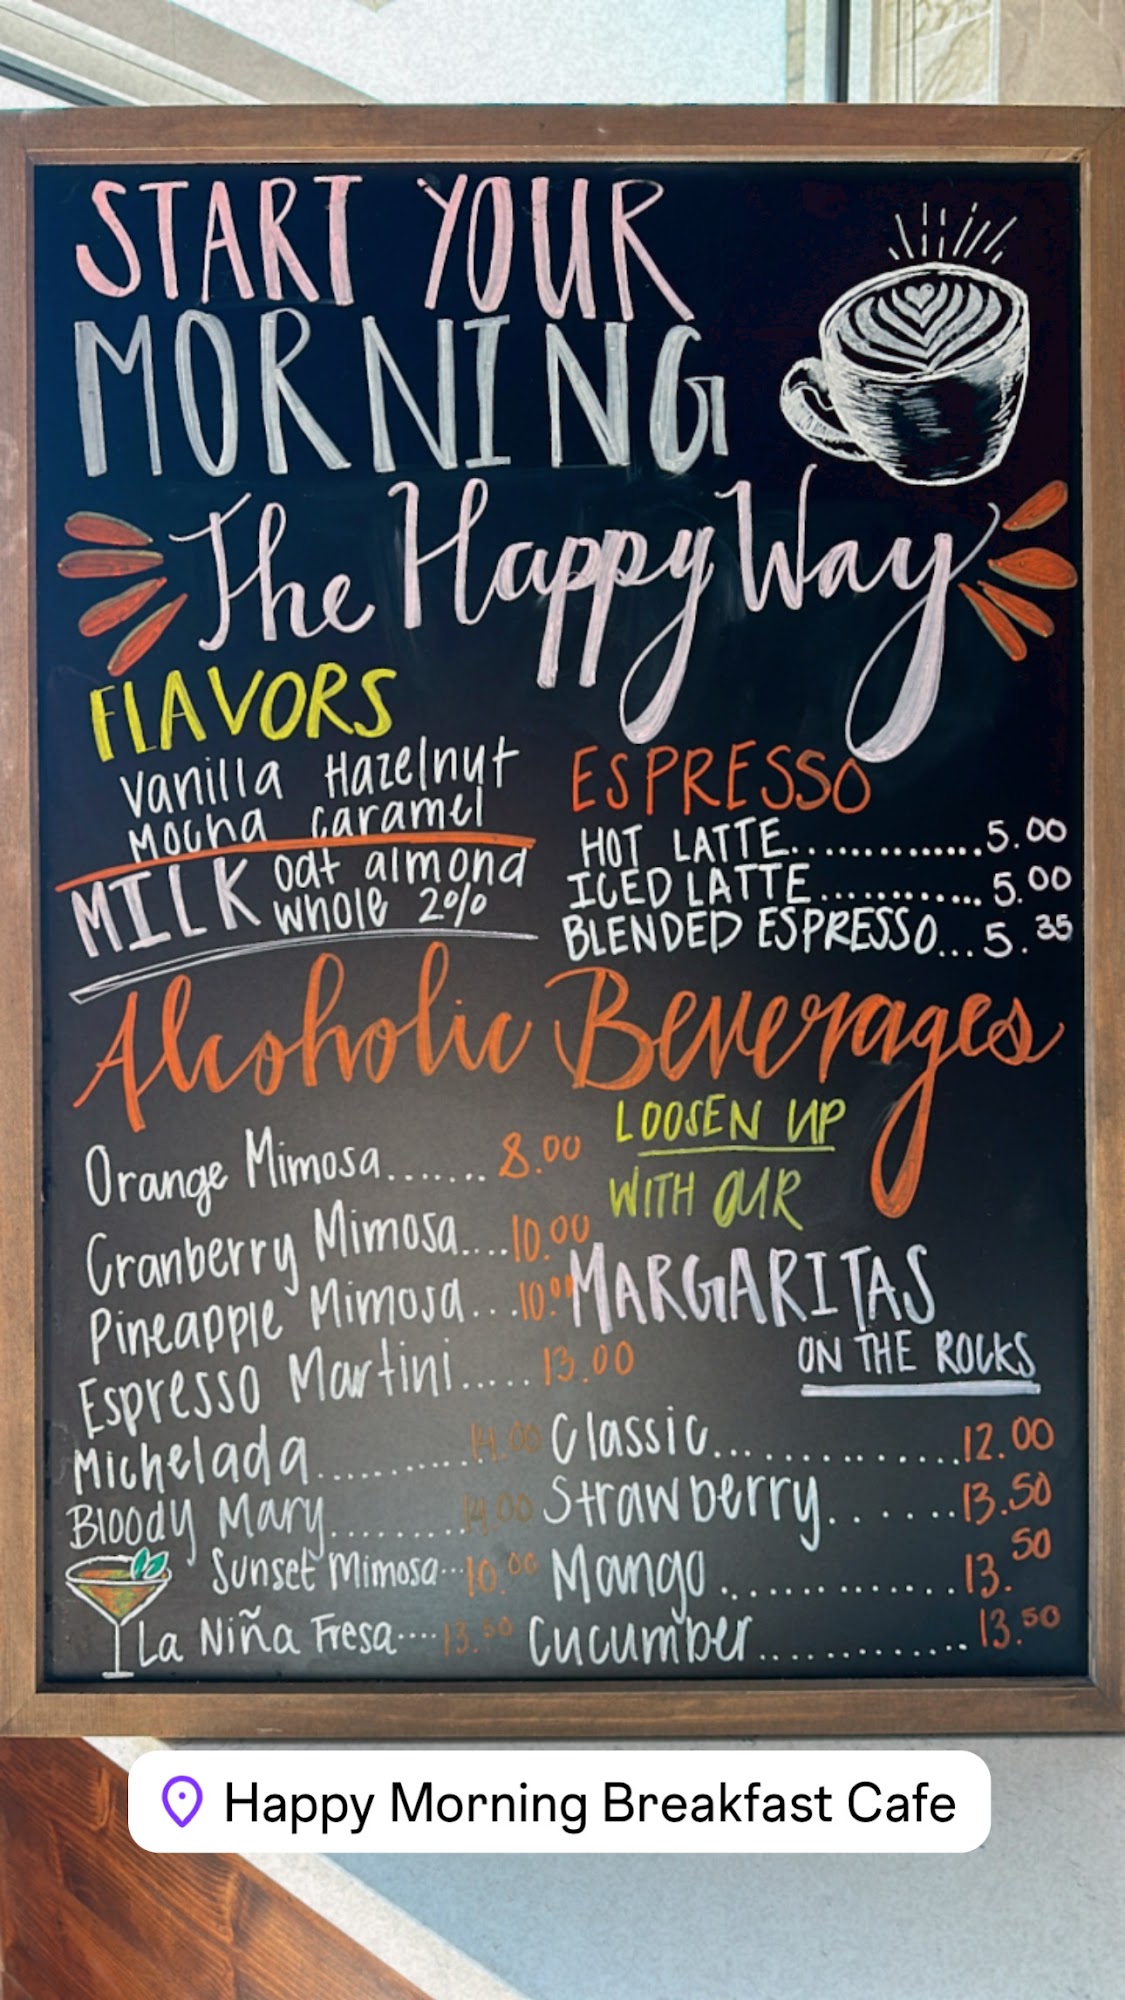 START YOUR
MORNING
The Happy Way
FLAVORS
Vanilla Hazelnut
Mocha caramel
MILK oat almond
whole 2%
ESPRESSO
HOT LATTE..............5.00
ICED LATTE............5.00
BLENDED ESPRESSO...5.35
Alcoholic Beverages
Orange Mimosa.......8.00
Cranberry Mimosa....10.00
Pineapple Mimosa...10.00
Espresso Martini.....13.00
Michelada...........14.00
Bloody Mary.........14.00
Sunset Mimosa...10.00
La Niña Fresa....13.50
LOOSEN UP
WITH OUR
MARGARITAS
ON THE ROCKS
Classic..............12.00
Strawberry.......13.50
Mango.............13.50
Cucumber............13.50
Happy Morning Breakfast Cafe